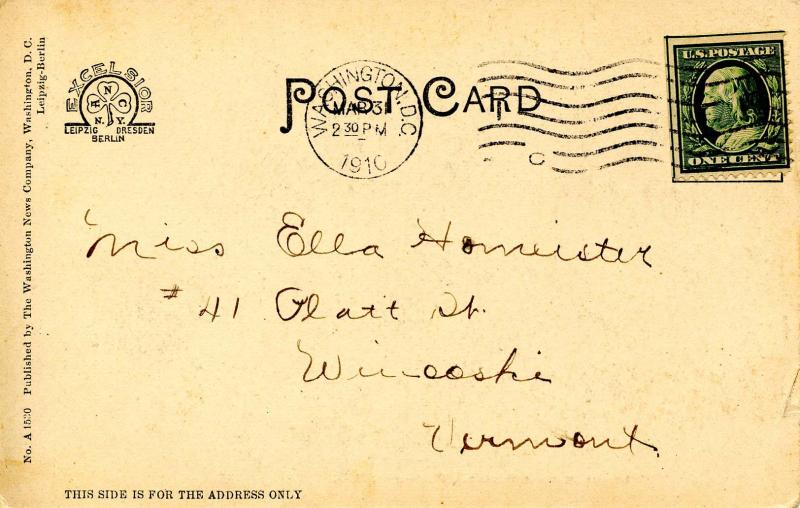 No. A 1520 Published by The Washington News Company, Washington, D. C.
Leipzig-Berlin
EXCELSIOR
A N C
N.Y.
LEIPZIG DRESDEN
BERLIN
POST CARD
WASHINGTON, D.C.
MAR 31
2 30 PM
1910
C
U.S. POSTAGE
ONE CENT
Miss Ella Homeister
# 41 Platt St.
Winooski
Vermont.
THIS SIDE IS FOR THE ADDRESS ONLY